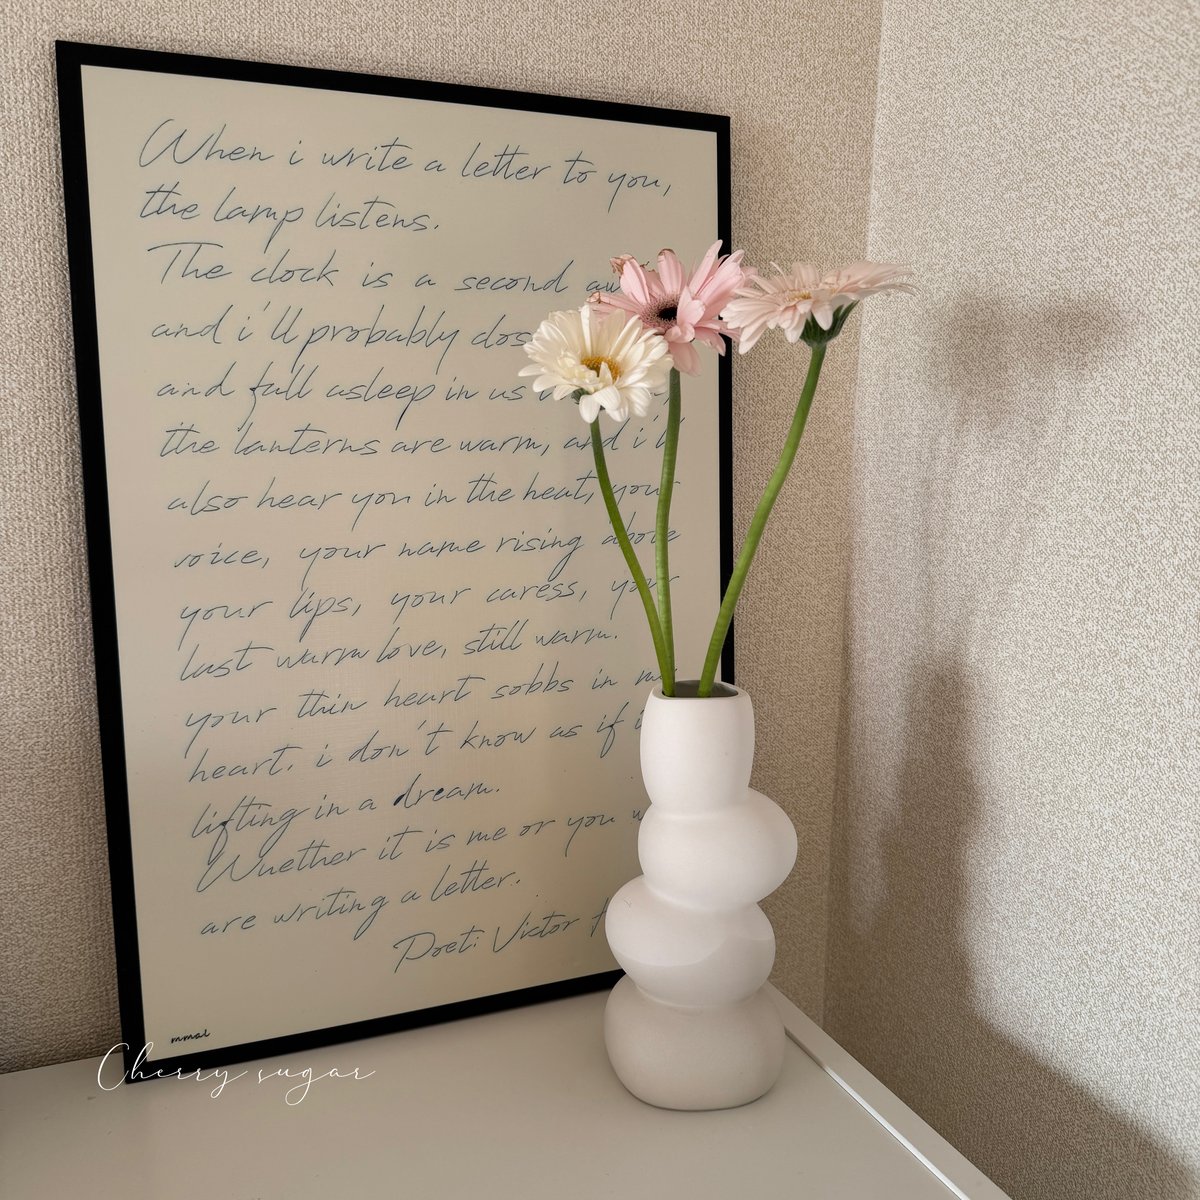 When i write a letter to you,
the lamp listens.
The clock is a second
and i'll probably
and fall asleep in us
the lanterns are warm, and i'll
also hear you in the heat, your
voice, your name rising above
your lips, your caress, your
last warm love, still warm.
your thin heart sobbs in
heart. i don't know as if
lifting in a dream.
Whether it is me or you
are writing a letter.
Poet: Victor
mmol
Cherry sugar